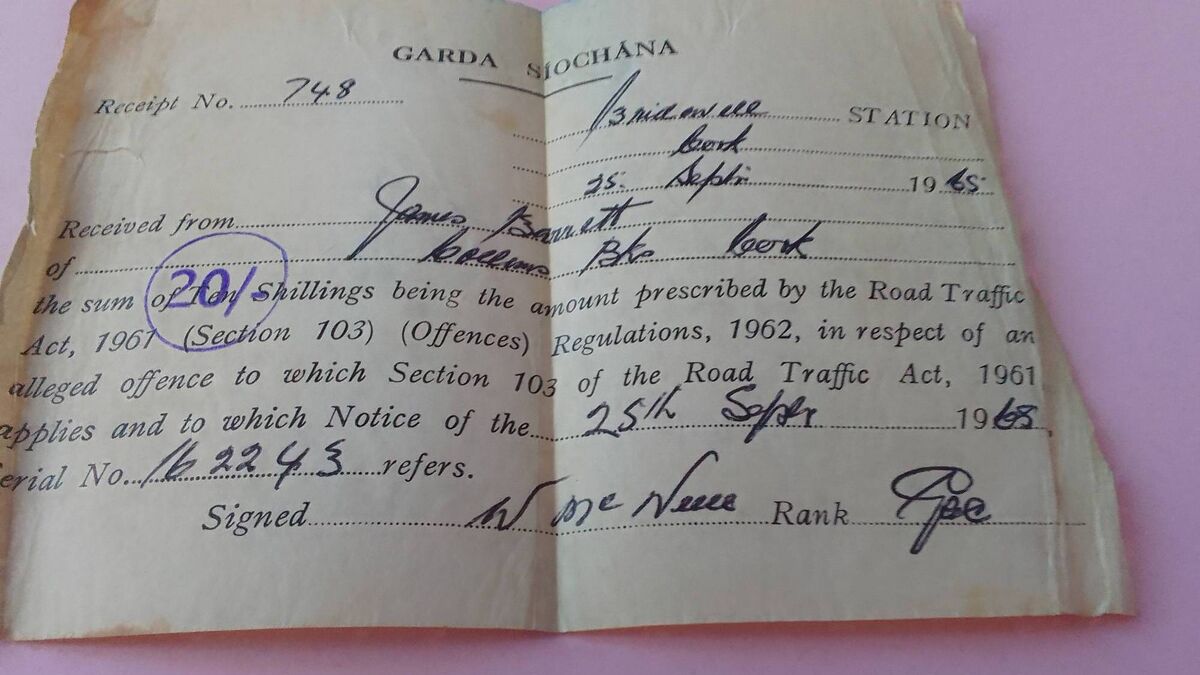 GARDA SÍOCHÁNA
Receipt No. 748
Bridewell STATION
Cork
25. Septr 1965
Received from James Barrett
of Collins Bks Cork
the sum of Ten Shillings being the amount prescribed by the Road Traffic
20/-
Act, 1961 (Section 103) (Offences) Regulations, 1962, in respect of an
alleged offence to which Section 103 of the Road Traffic Act, 1961
applies and to which Notice of the 25th Septr 1965,
erial No. 162243 refers.
Signed W Mc Rank